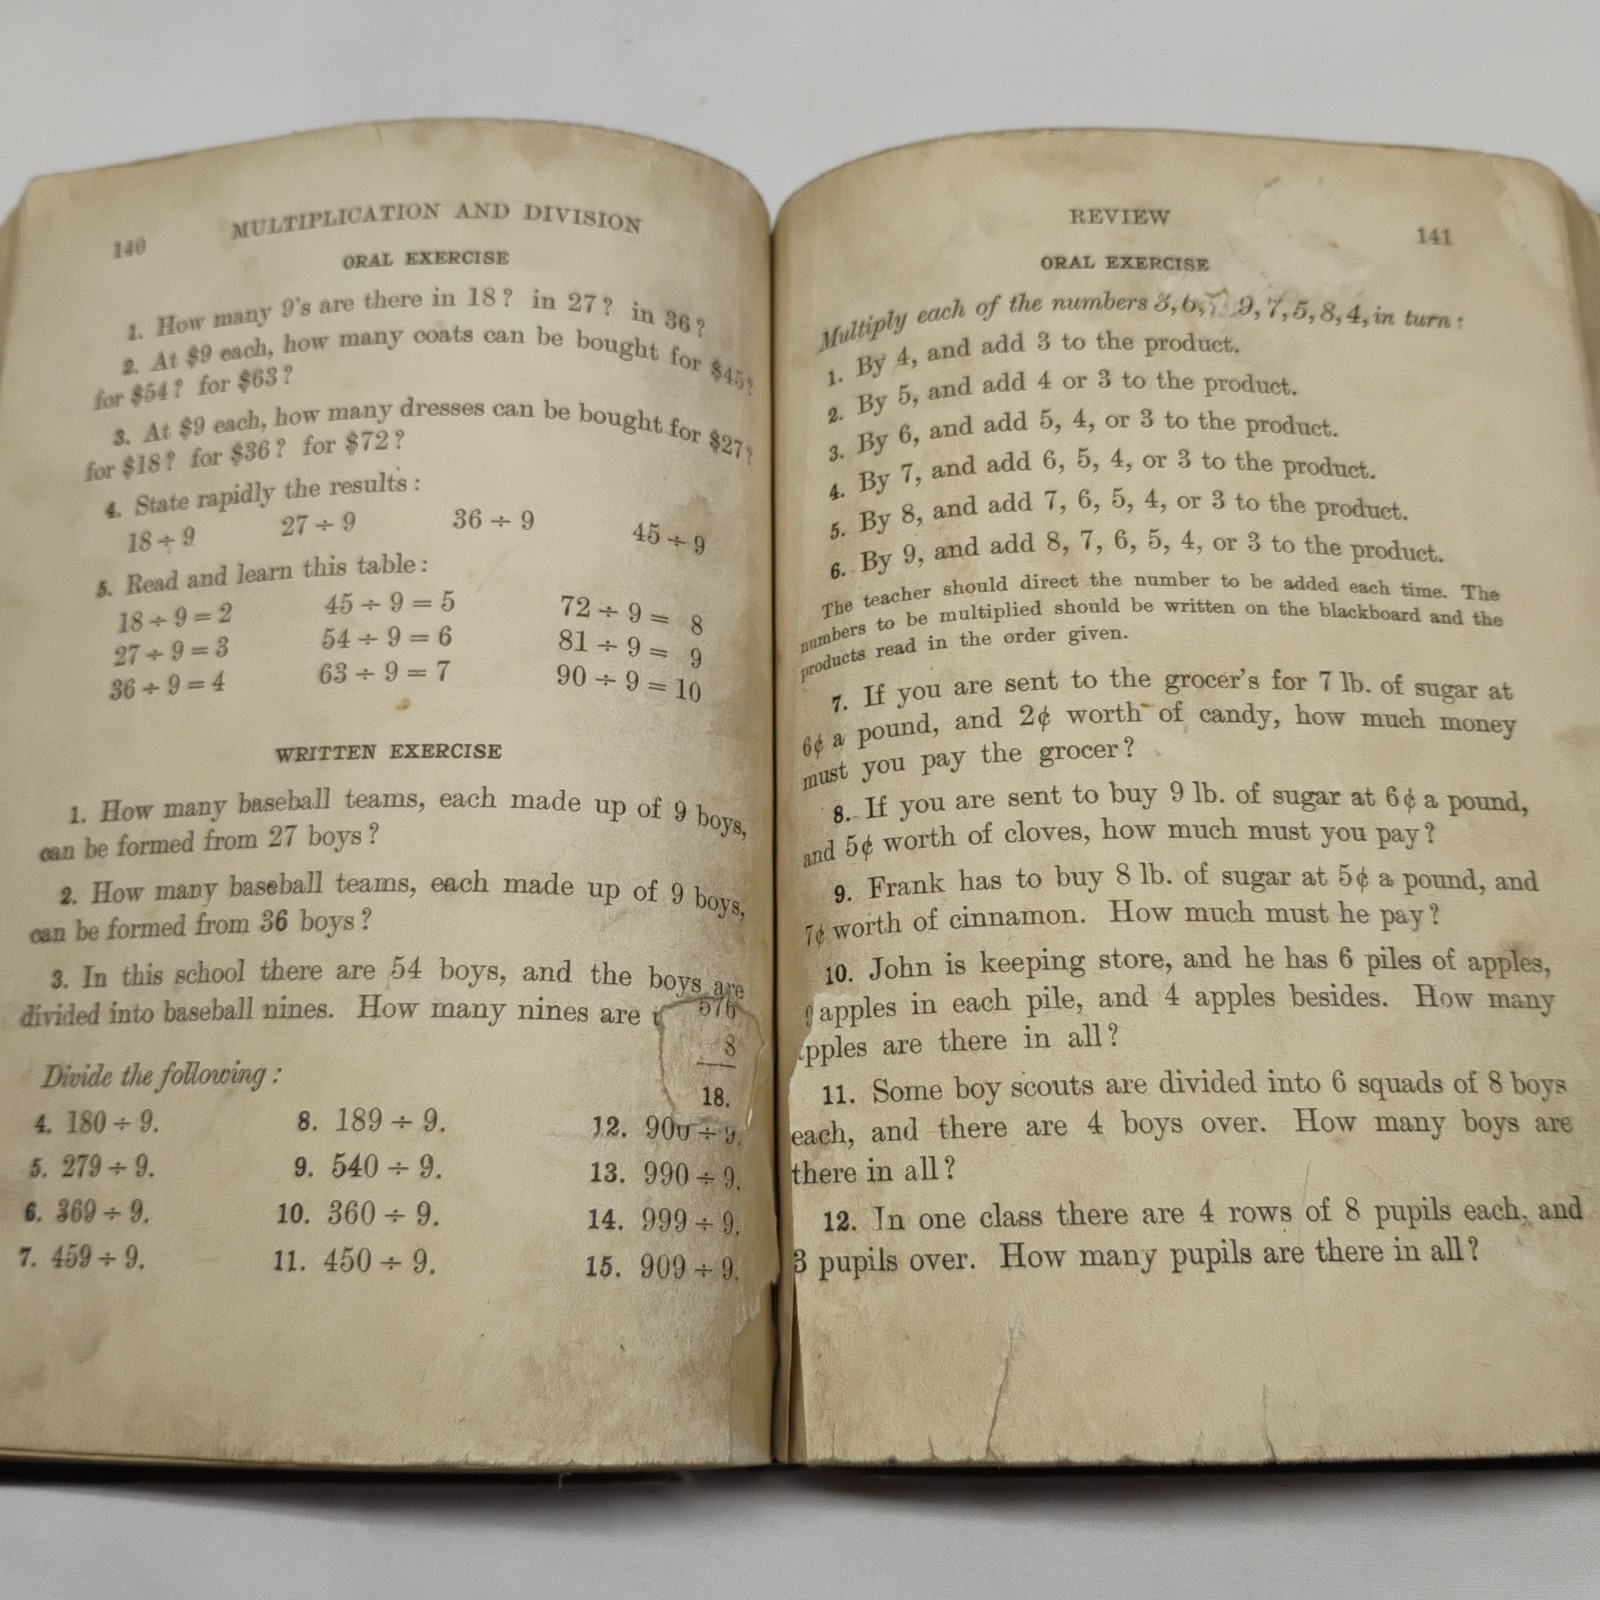 140
MULTIPLICATION AND DIVISION
ORAL EXERCISE
1. How many 9's are there in 18? in 27? in 36?
2. At $9 each, how many coats can be bought for $45?
for $54? for $63?
3. At $9 each, how many dresses can be bought for $27?
for $18? for $36? for $72?
4. State rapidly the results:
18 ÷ 9 27 ÷ 9 36 ÷ 9 45 ÷ 9
5. Read and learn this table:
18 ÷ 9 = 2 45 ÷ 9 = 5 72 ÷ 9 = 8
27 ÷ 9 = 3 54 ÷ 9 = 6 81 ÷ 9 = 9
36 ÷ 9 = 4 63 ÷ 9 = 7 90 ÷ 9 = 10
WRITTEN EXERCISE
1. How many baseball teams, each made up of 9 boys,
can be formed from 27 boys?
2. How many baseball teams, each made up of 9 boys,
can be formed from 36 boys?
3. In this school there are 54 boys, and the boys are
divided into baseball nines. How many nines are
576
8
18.
Divide the following:
4. 180 ÷ 9. 8. 189 ÷ 9. 12. 900 ÷ 9.
5. 279 ÷ 9. 9. 540 ÷ 9. 13. 990 ÷ 9.
6. 369 ÷ 9. 10. 360 ÷ 9. 14. 999 ÷ 9.
7. 459 ÷ 9. 11. 450 ÷ 9. 15. 909 ÷ 9.
REVIEW
141
ORAL EXERCISE
Multiply each of the numbers 3, 6, 9, 7, 5, 8, 4, in turn:
1. By 4, and add 3 to the product.
2. By 5, and add 4 or 3 to the product.
3. By 6, and add 5, 4, or 3 to the product.
4. By 7, and add 6, 5, 4, or 3 to the product.
5. By 8, and add 7, 6, 5, 4, or 3 to the product.
6. By 9, and add 8, 7, 6, 5, 4, or 3 to the product.
The teacher should direct the number to be added each time. The
numbers to be multiplied should be written on the blackboard and the
products read in the order given.
7. If you are sent to the grocer's for 7 lb. of sugar at
6¢ a pound, and 2¢ worth of candy, how much money
must you pay the grocer?
8. If you are sent to buy 9 lb. of sugar at 6¢ a pound,
and 5¢ worth of cloves, how much must you pay?
9. Frank has to buy 8 lb. of sugar at 5¢ a pound, and
7¢ worth of cinnamon. How much must he pay?
10. John is keeping store, and he has 6 piles of apples,
apples in each pile, and 4 apples besides. How many
pples are there in all?
11. Some boy scouts are divided into 6 squads of 8 boys
each, and there are 4 boys over. How many boys are
there in all?
12. In one class there are 4 rows of 8 pupils each, and
3 pupils over. How many pupils are there in all?